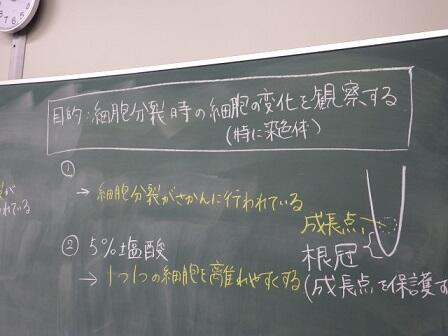 目的:細胞分裂時の細胞の変化を観察する
(特に染色体)
①
→ 細胞分裂がさかんに行われている
われている
成長点
② 5%塩酸
根冠
→ 1つ1つの細胞を離れやすくする
(成長点を保護す